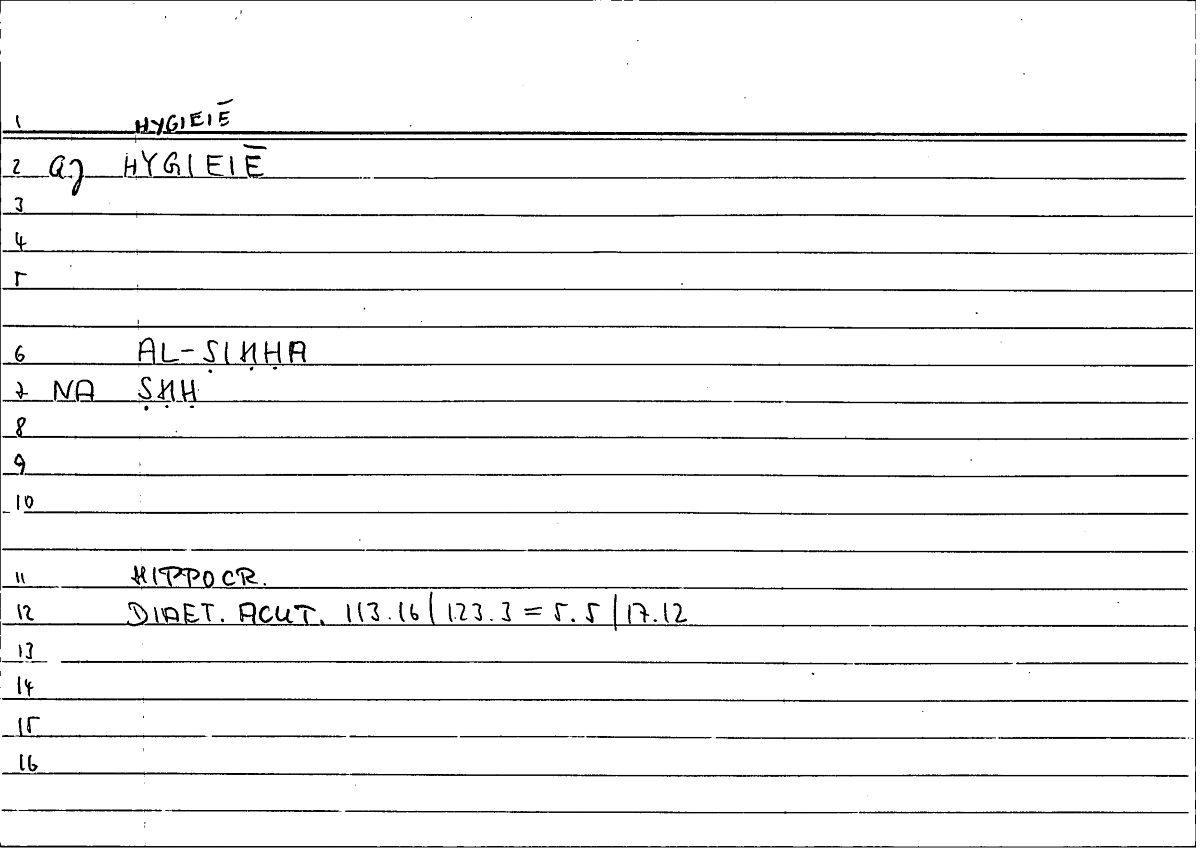 1 HYGIEIĒ
2 a) HYGIEIĒ
3
4
5
6 AL-ṢIḤḤA
7 NA ṢḤḤ
8
9
10
11 HIPPOCR.
12 DIAET. ACUT. 113.16 | 123.3 = 5.5 | 17.12
13
14
15
16